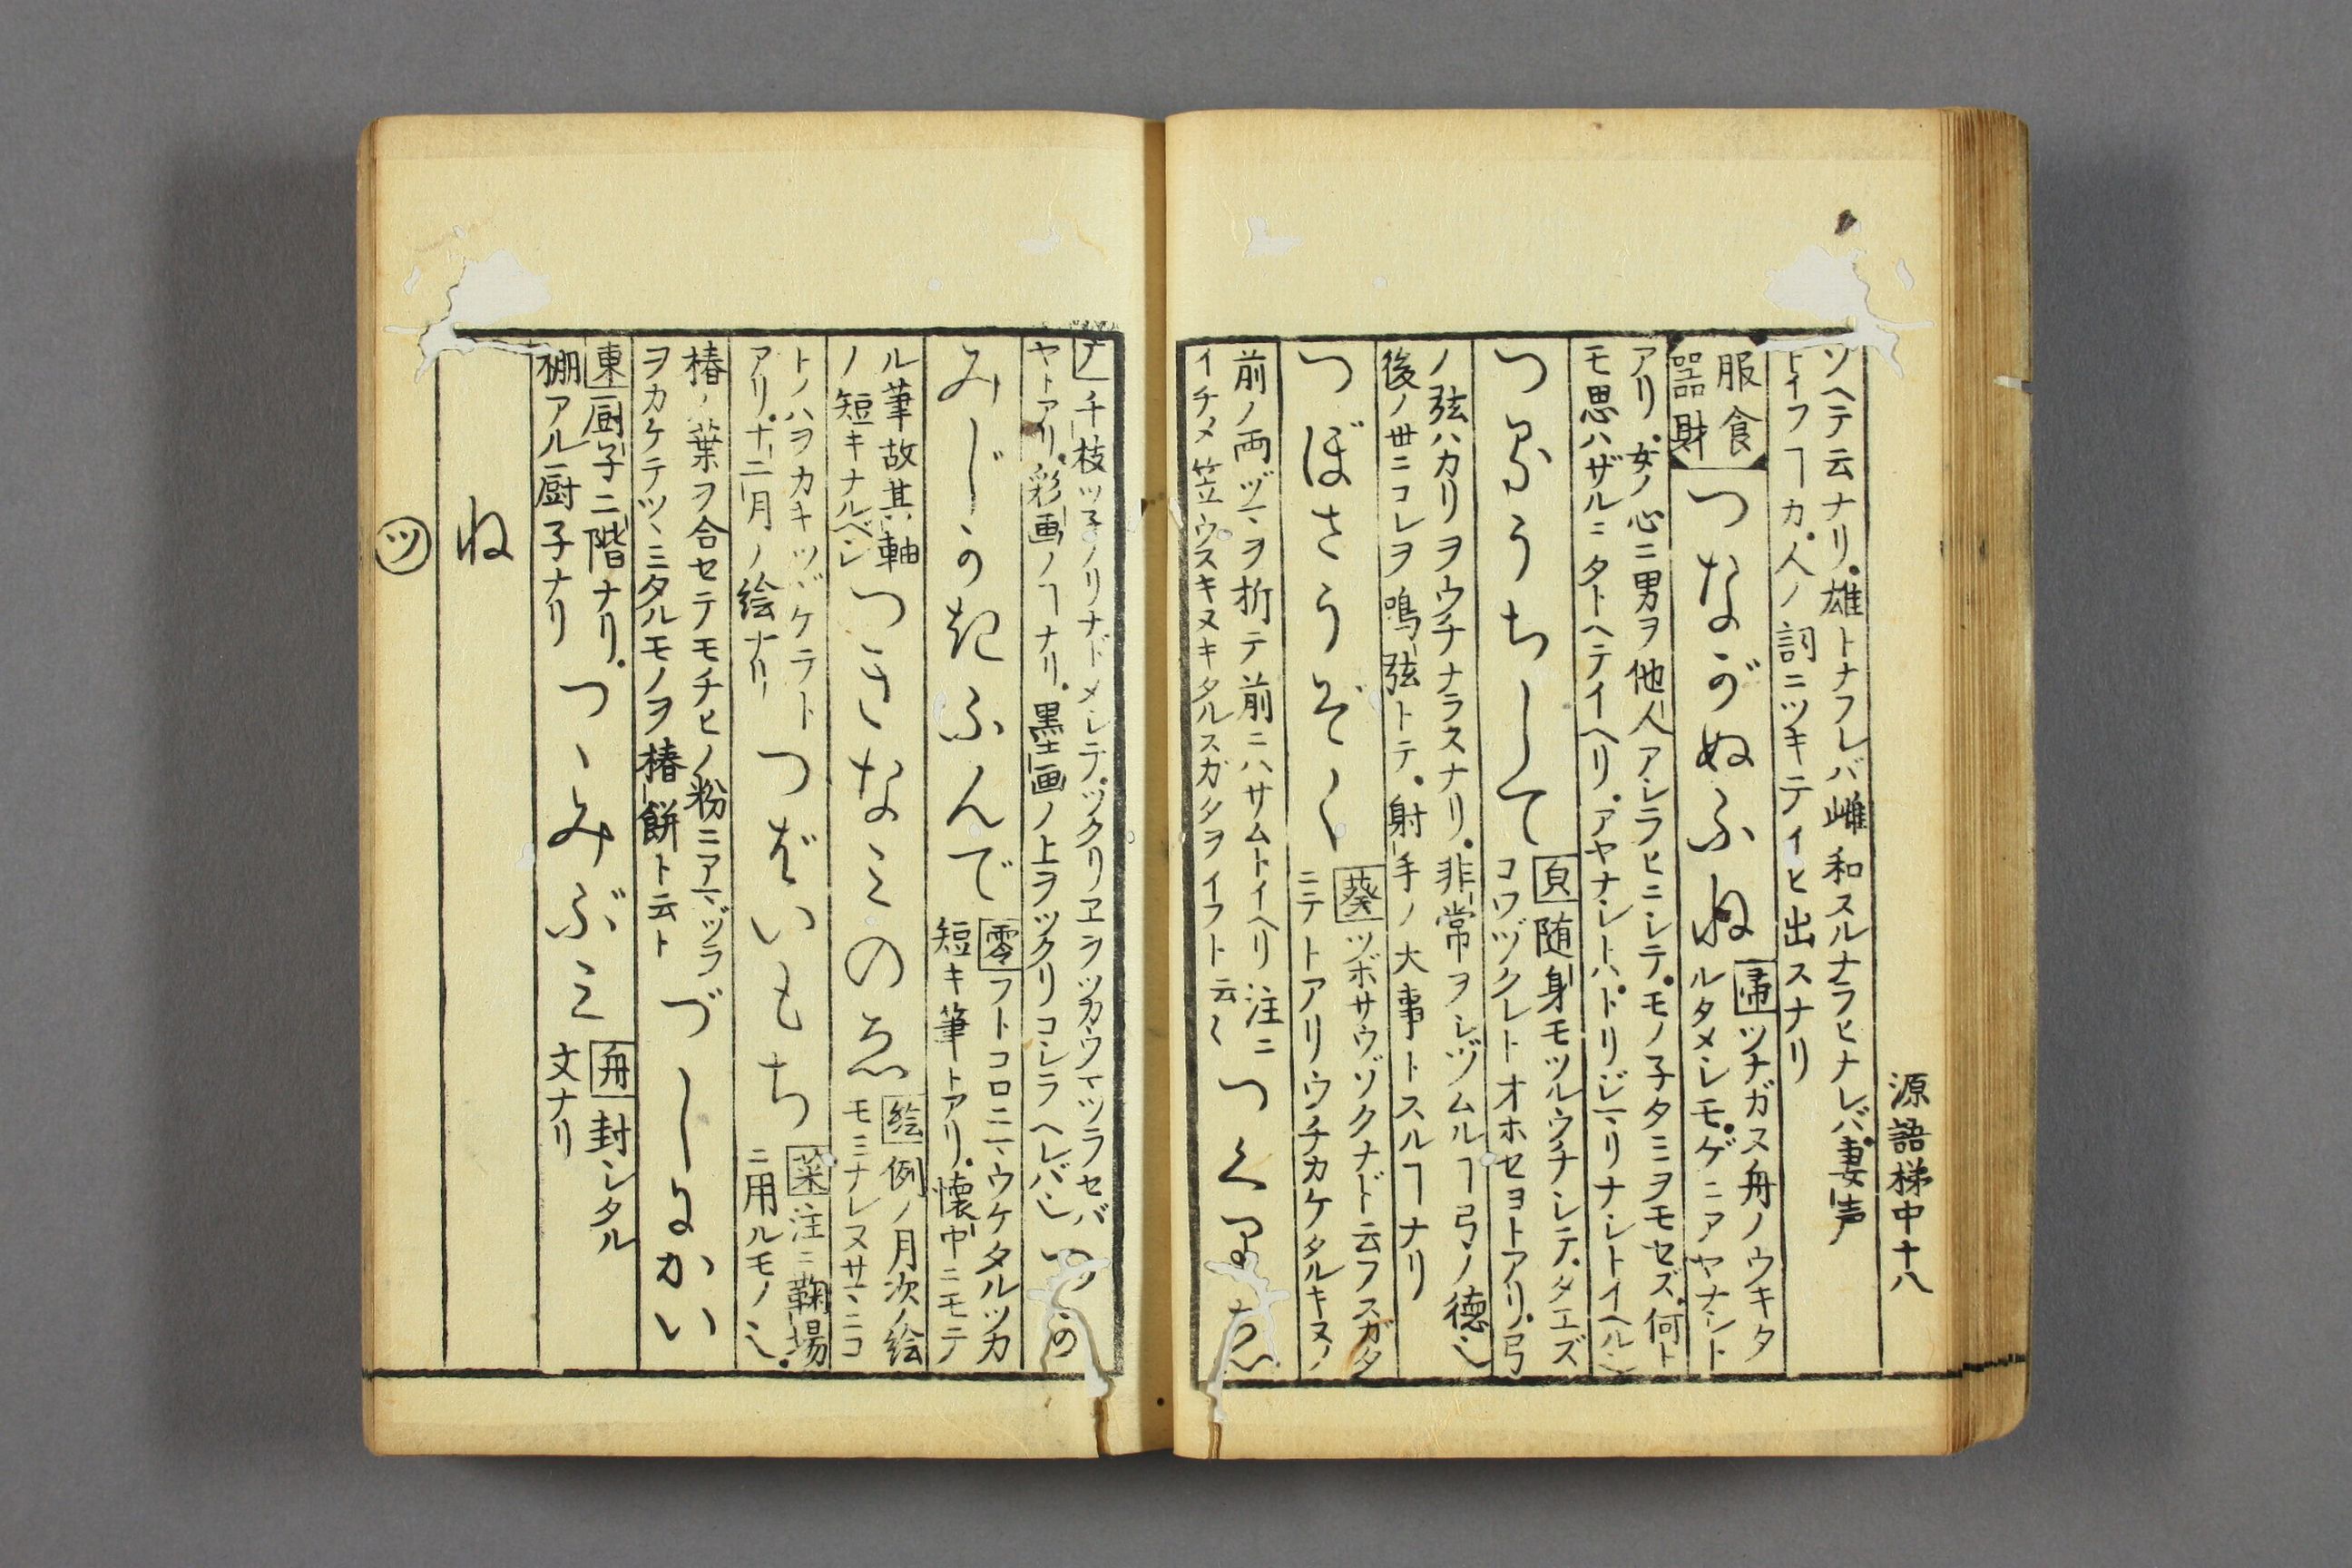 源語梯中十八
ソヘテ云ナリ。雄トナフレバ雌和スルナラヒナレバ。妻声
トイフヿカ。人ノ詞ニツキテイヒ出スナリ
服食
器財
つながぬふね
帚 ツナガヌ舟ノウキタ
ルタメシモ。ゲニアヤナシト
アリ。女ノ心ニ男ヲ他人アシラヒニシテ。モノ子タミヲモセズ。何ト
モ思ハザルニタトヘテイヘリ。アヤナシトハ。トリジマリナシトイヘル也
つるうちして
随身モツルウチシテ。タエズ
コワヅクレトオホセヨトアリ。弓
ノ弦ハカリヲウチナラスナリ。非常ヲシヅムルヿ弓ノ徳也
後ノ世ニコレヲ鳴弦トテ。射手ノ大事トスルヿナリ
つぼさうぞく
葵 ツボサウゾクナド云フスガタ
ニテトアリウチカケタルキヌノ
前ノ両ヅマヲ折テ前ニハサムトイヘリ注ニ
イチメ笠ウスキヌキタルスガタヲイフト云〱
つくりゑ
千枝ツ子ノリナドメシテ。ツクリヱヲツカウマツラセバ
ヤトアリ。彩画ノヿナリ。墨画ノ上ヲツクリコシラヘレバ也
つの
みじかきふんで
零 フトコロニマウケタルツカ
短キ筆トアリ。懐中ニモテ
ル筆故其軸
ノ短キナルベシ
つきなみのゑ
絵 例ノ月次ノ絵
モミナレヌサマニコ
トノハヲカキツヾケラト
アリ。十二月ノ絵ナリ
つばいもち
菜 注ニ鞠場
ニ用ルモノ也。
椿ノ葉ヲ合セテモチヒノ粉ニアマヅラ
ヲカケテツヽミタルモノヲ椿餅ト云ト
づしにかい
東 厨子二階ナリ。
棚アル厨子ナリ
つゝみぶみ
舟 封シタル
文ナリ
ね
ツ